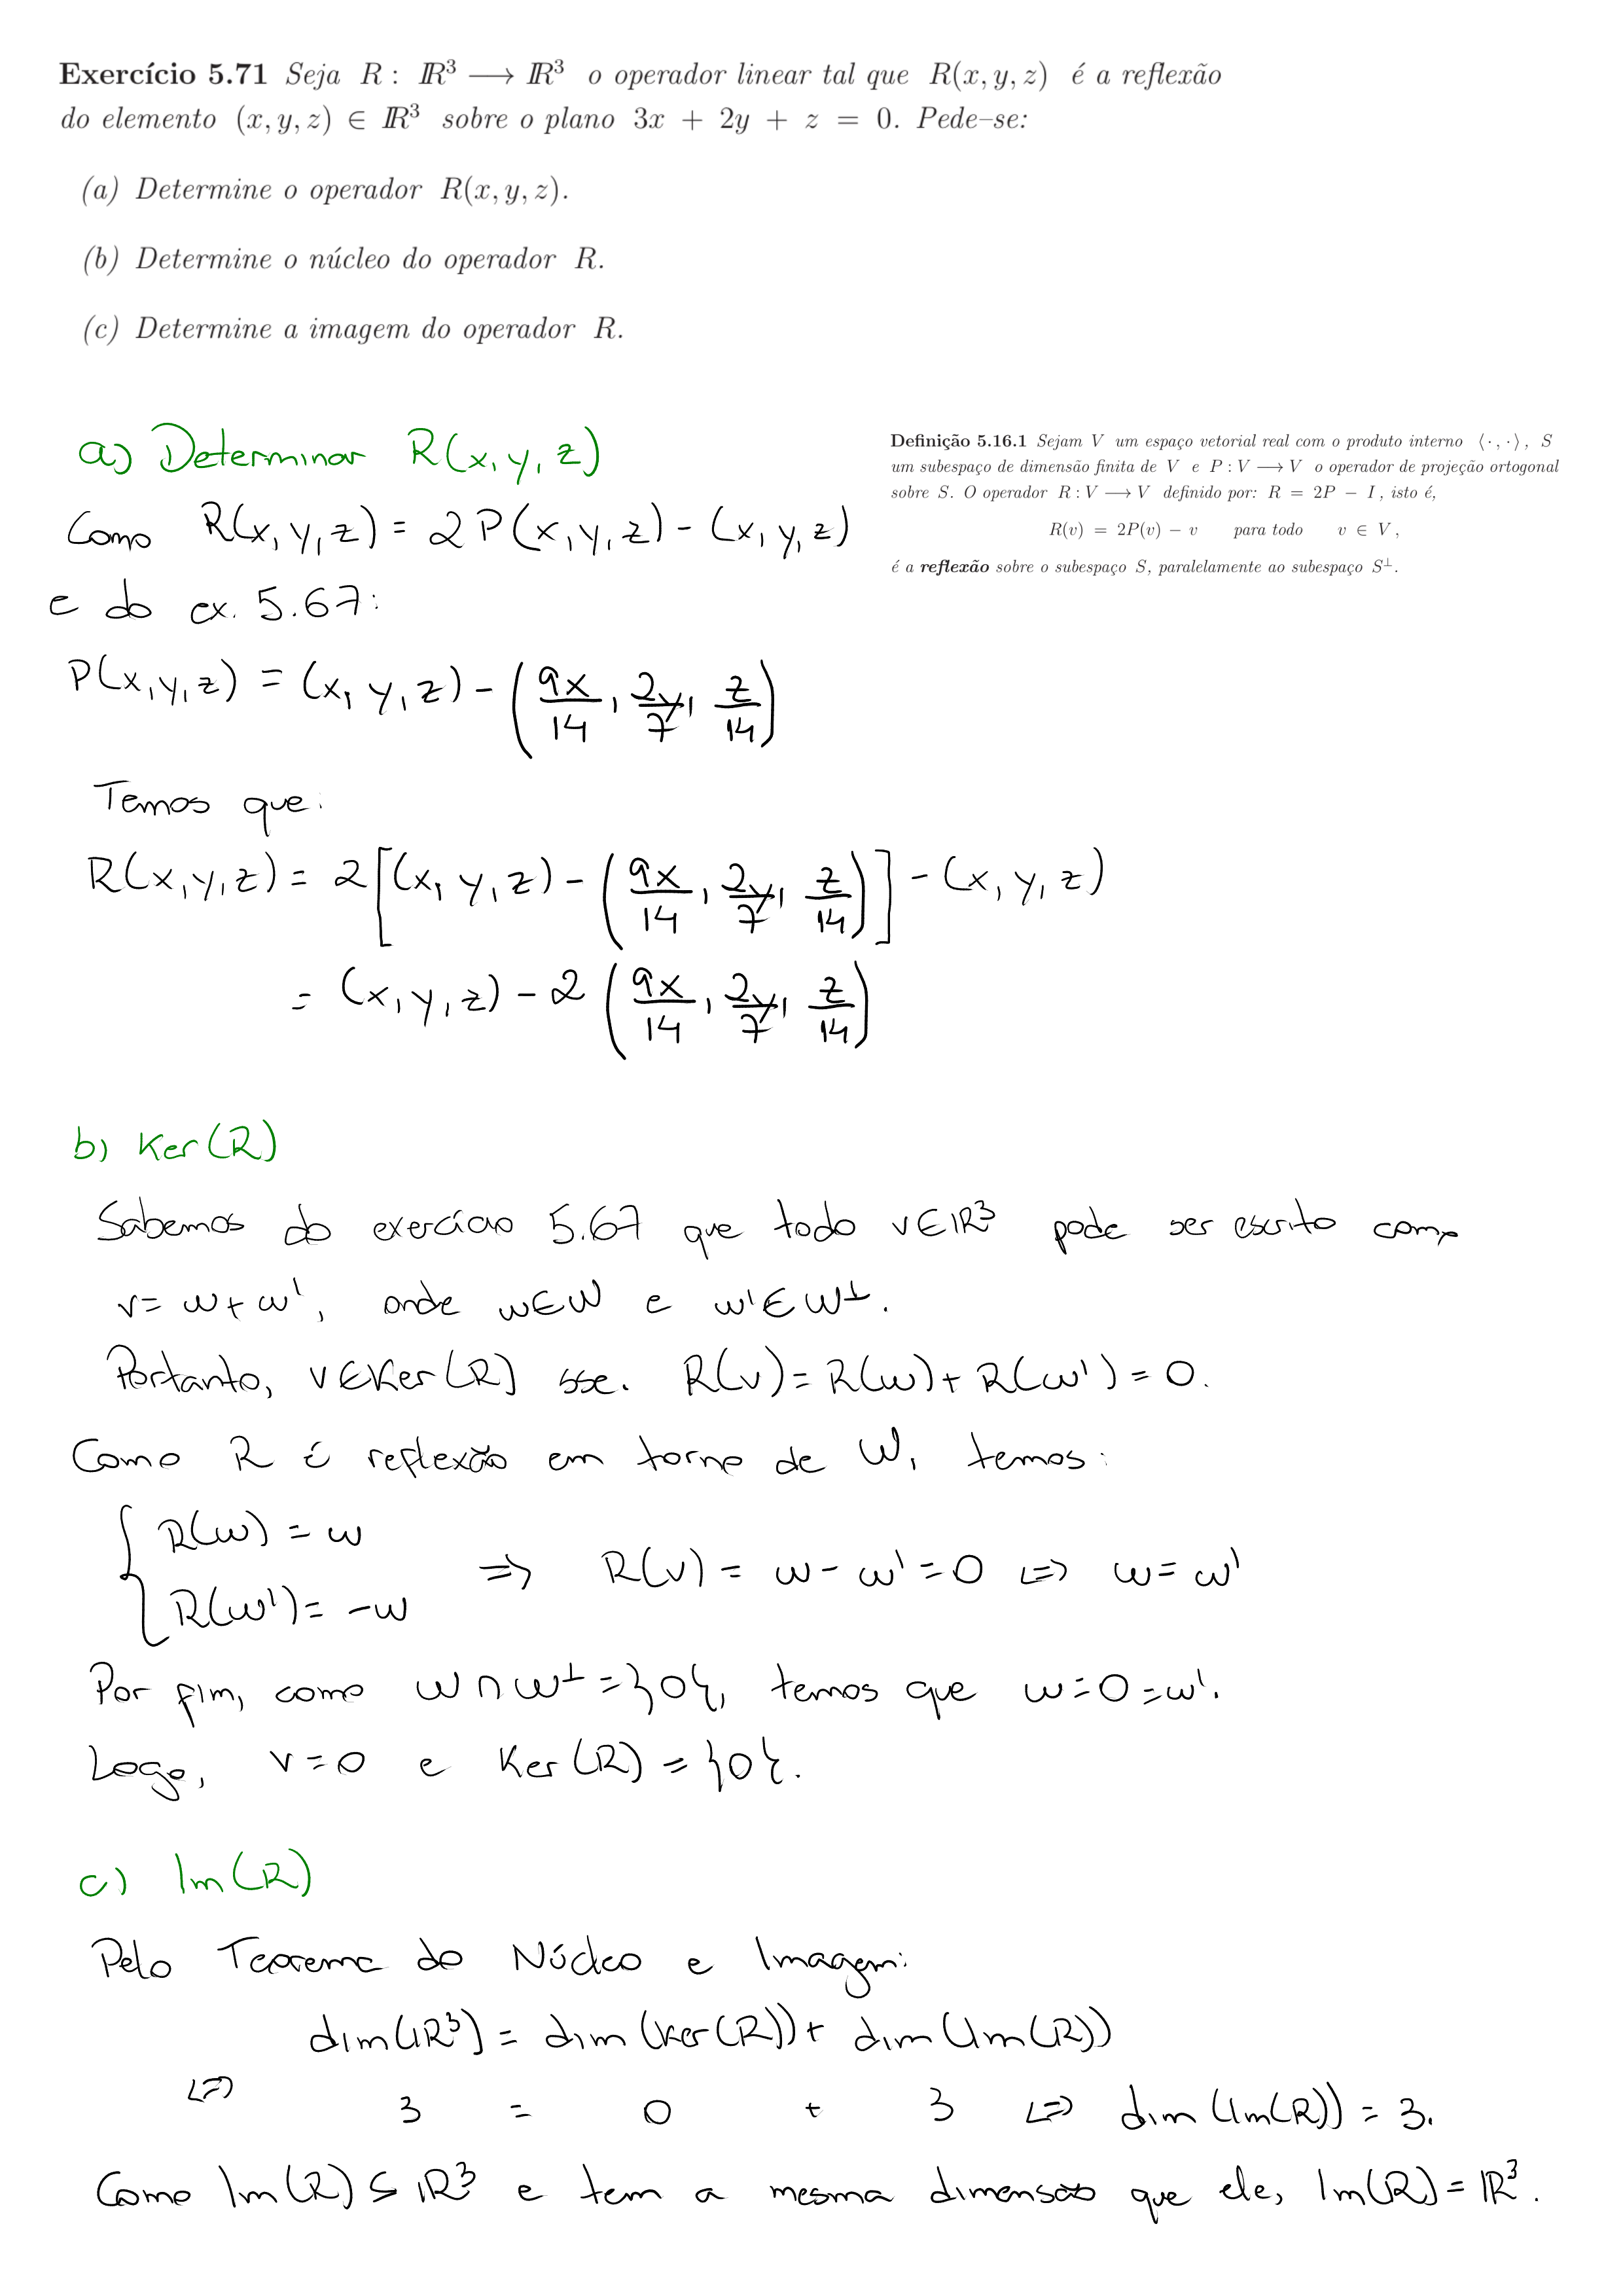 Exercício 5.71 Seja R : IR³ ⟶ IR³ o operador linear tal que R(x, y, z) é a reflexão
do elemento (x, y, z) ∈ IR³ sobre o plano 3x + 2y + z = 0. Pede–se:
(a) Determine o operador R(x, y, z).
(b) Determine o núcleo do operador R.
(c) Determine a imagem do operador R.
a) Determinar R(x, y, z)
Definição 5.16.1 Sejam V um espaço vetorial real com o produto interno ⟨·, ·⟩, S
um subespaço de dimensão finita de V e P : V ⟶ V o operador de projeção ortogonal
sobre S. O operador R : V ⟶ V definido por: R = 2P − I, isto é,
R(v) = 2P(v) − v para todo v ∈ V,
é a reflexão sobre o subespaço S, paralelamente ao subespaço S⊥.
Como R(x, y, z) = 2P(x, y, z) - (x, y, z)
e do ex. 5.67:
P(x, y, z) = (x, y, z) - (9x/14, 2y/7, z/14)
Temos que:
R(x, y, z) = 2[(x, y, z) - (9x/14, 2y/7, z/14)] - (x, y, z)
= (x, y, z) - 2 (9x/14, 2y/7, z/14)
b) Ker(R)
Sabemos do exercício 5.67 que todo v∈IR³ pode ser escrito como
v = w + w', onde w∈W e w'∈W⊥.
Portanto, v∈Ker(R) sse. R(v) = R(w) + R(w') = 0.
Como R é reflexão em torno de W, temos:
{ R(w) = w
R(w') = -w ⇒ R(v) = w - w' = 0 ⇔ w = w'
Por fim, como W ∩ W⊥ = {0}, temos que w = 0 = w'.
Logo, v = 0 e Ker(R) = {0}.
c) Im(R)
Pelo Teorema do Núcleo e Imagem:
dim(IR³) = dim(Ker(R)) + dim(Im(R))
⇔ 3 = 0 + 3 ⇔ dim(Im(R)) = 3.
Como Im(R) ⊆ IR³ e tem a mesma dimensão que ele, Im(R) = IR³.